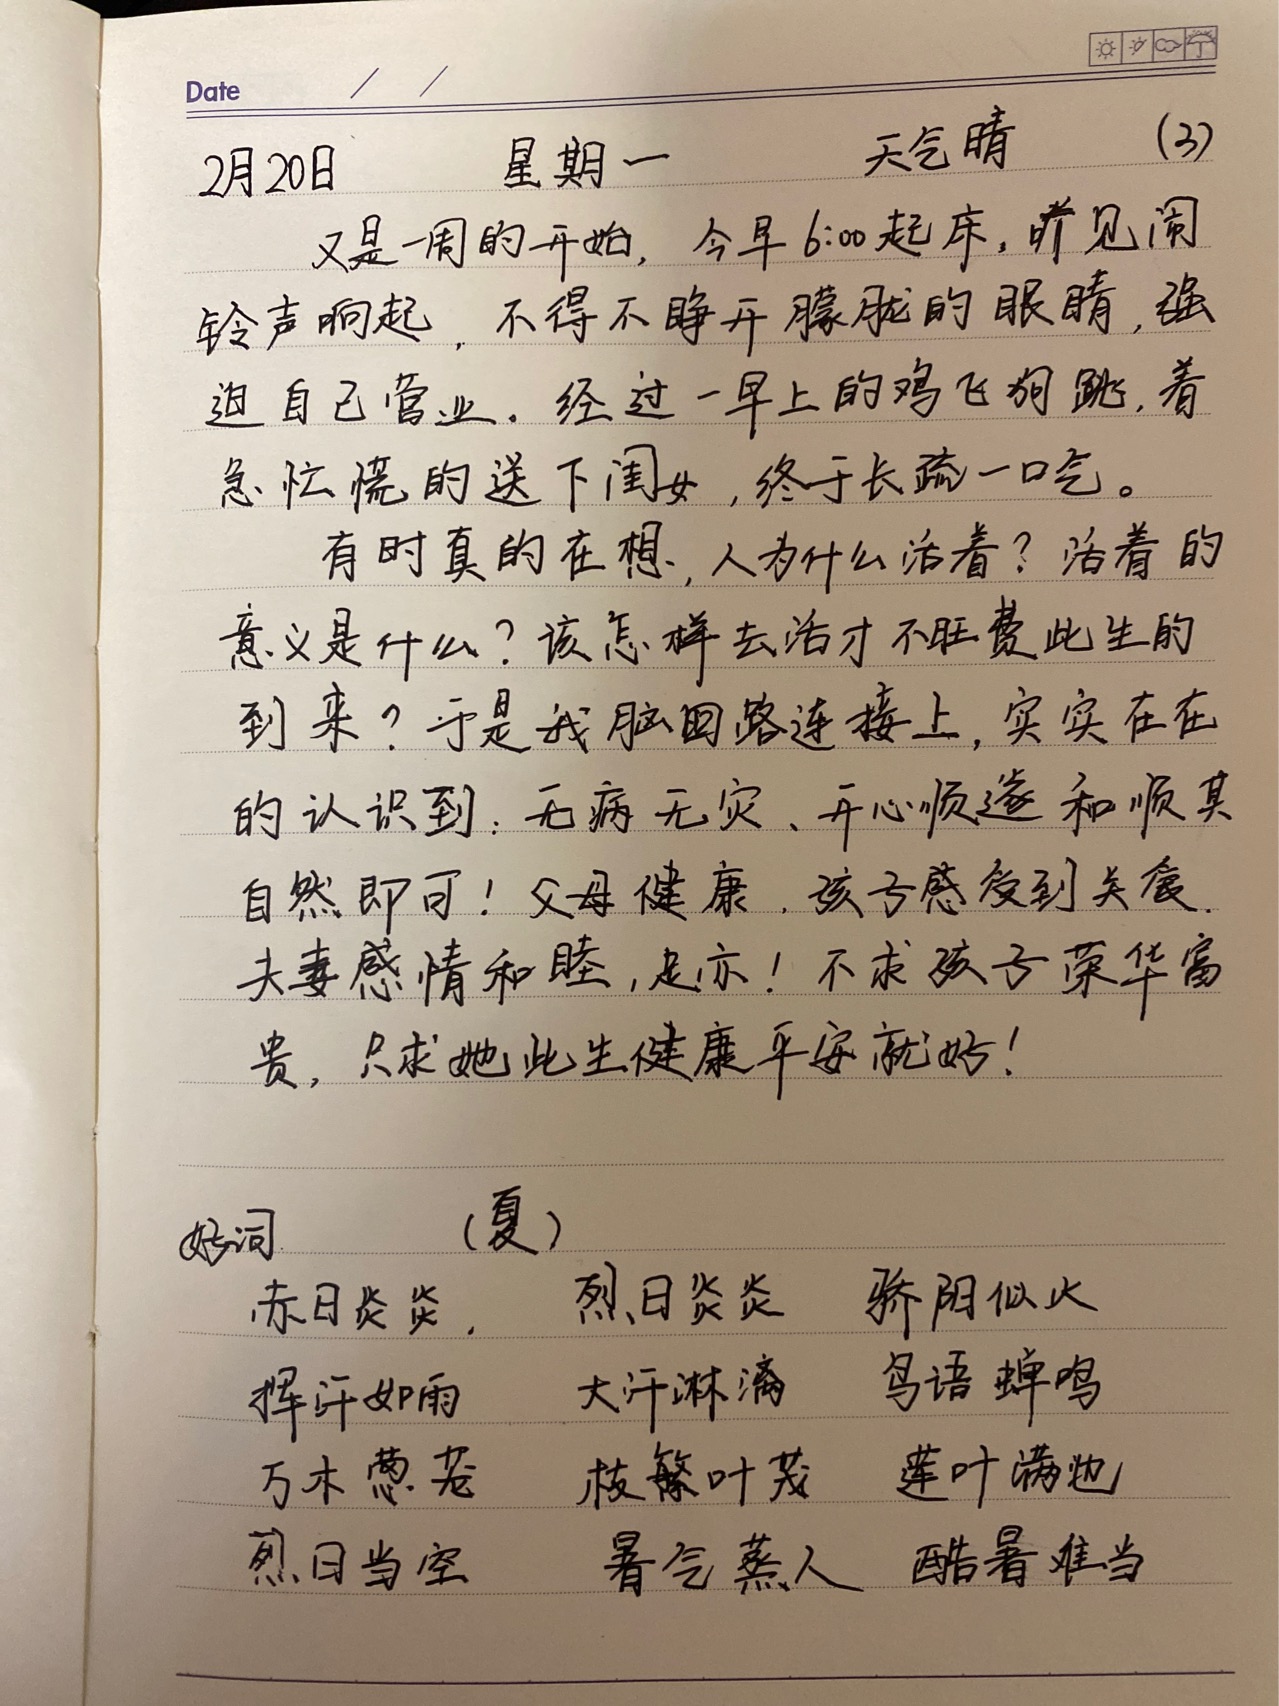 Date / /
2月20日 星期一 天气晴 (3)
又是一周的开始，今早6:00起床。听见闹
铃声响起，不得不睁开朦胧的眼睛，强
迫自己营业。经过一早上的鸡飞狗跳，着
急忙慌的送下闺女，终于长疏一口气。
有时真的在想，人为什么活着？活着的
意义是什么？该怎样去活才不旺费此生的
到来？于是我脑回路连接上，实实在在
的认识到：无病无灾、开心顺遂和顺其
自然即可！父母健康，孩子感受到关爱、
夫妻感情和睦，足亦！不求孩子荣华富
贵，只求她此生健康平安就好！
好词 (夏)
赤日炎炎， 烈日炎炎 骄阳似火
挥汗如雨 大汗淋漓 鸟语蝉鸣
万木葱茏 枝繁叶茂 莲叶满池
烈日当空 暑气蒸人 酷暑难当